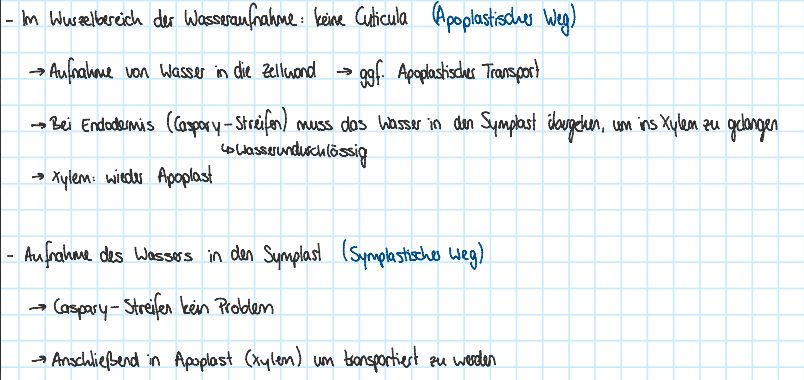 - Im Wurzelbereich der Wasseraufnahme: keine Cuticula (Apoplastischer Weg)
→ Aufnahme von Wasser in die Zellwand → ggf. Apoplastischer Transport
→ Bei Endodermis (Caspary-Streifen) muss das Wasser in den Symplast übergehen, um ins Xylem zu gelangen
↳ Wasserundurchlössig
→ Xylem: wieder Apoplast
- Aufnahme des Wassers in den Symplast (Symplastischer Weg)
→ Caspary-Streifen kein Problem
→ Anschließend in Apoplast (Xylem) um transportiert zu werden